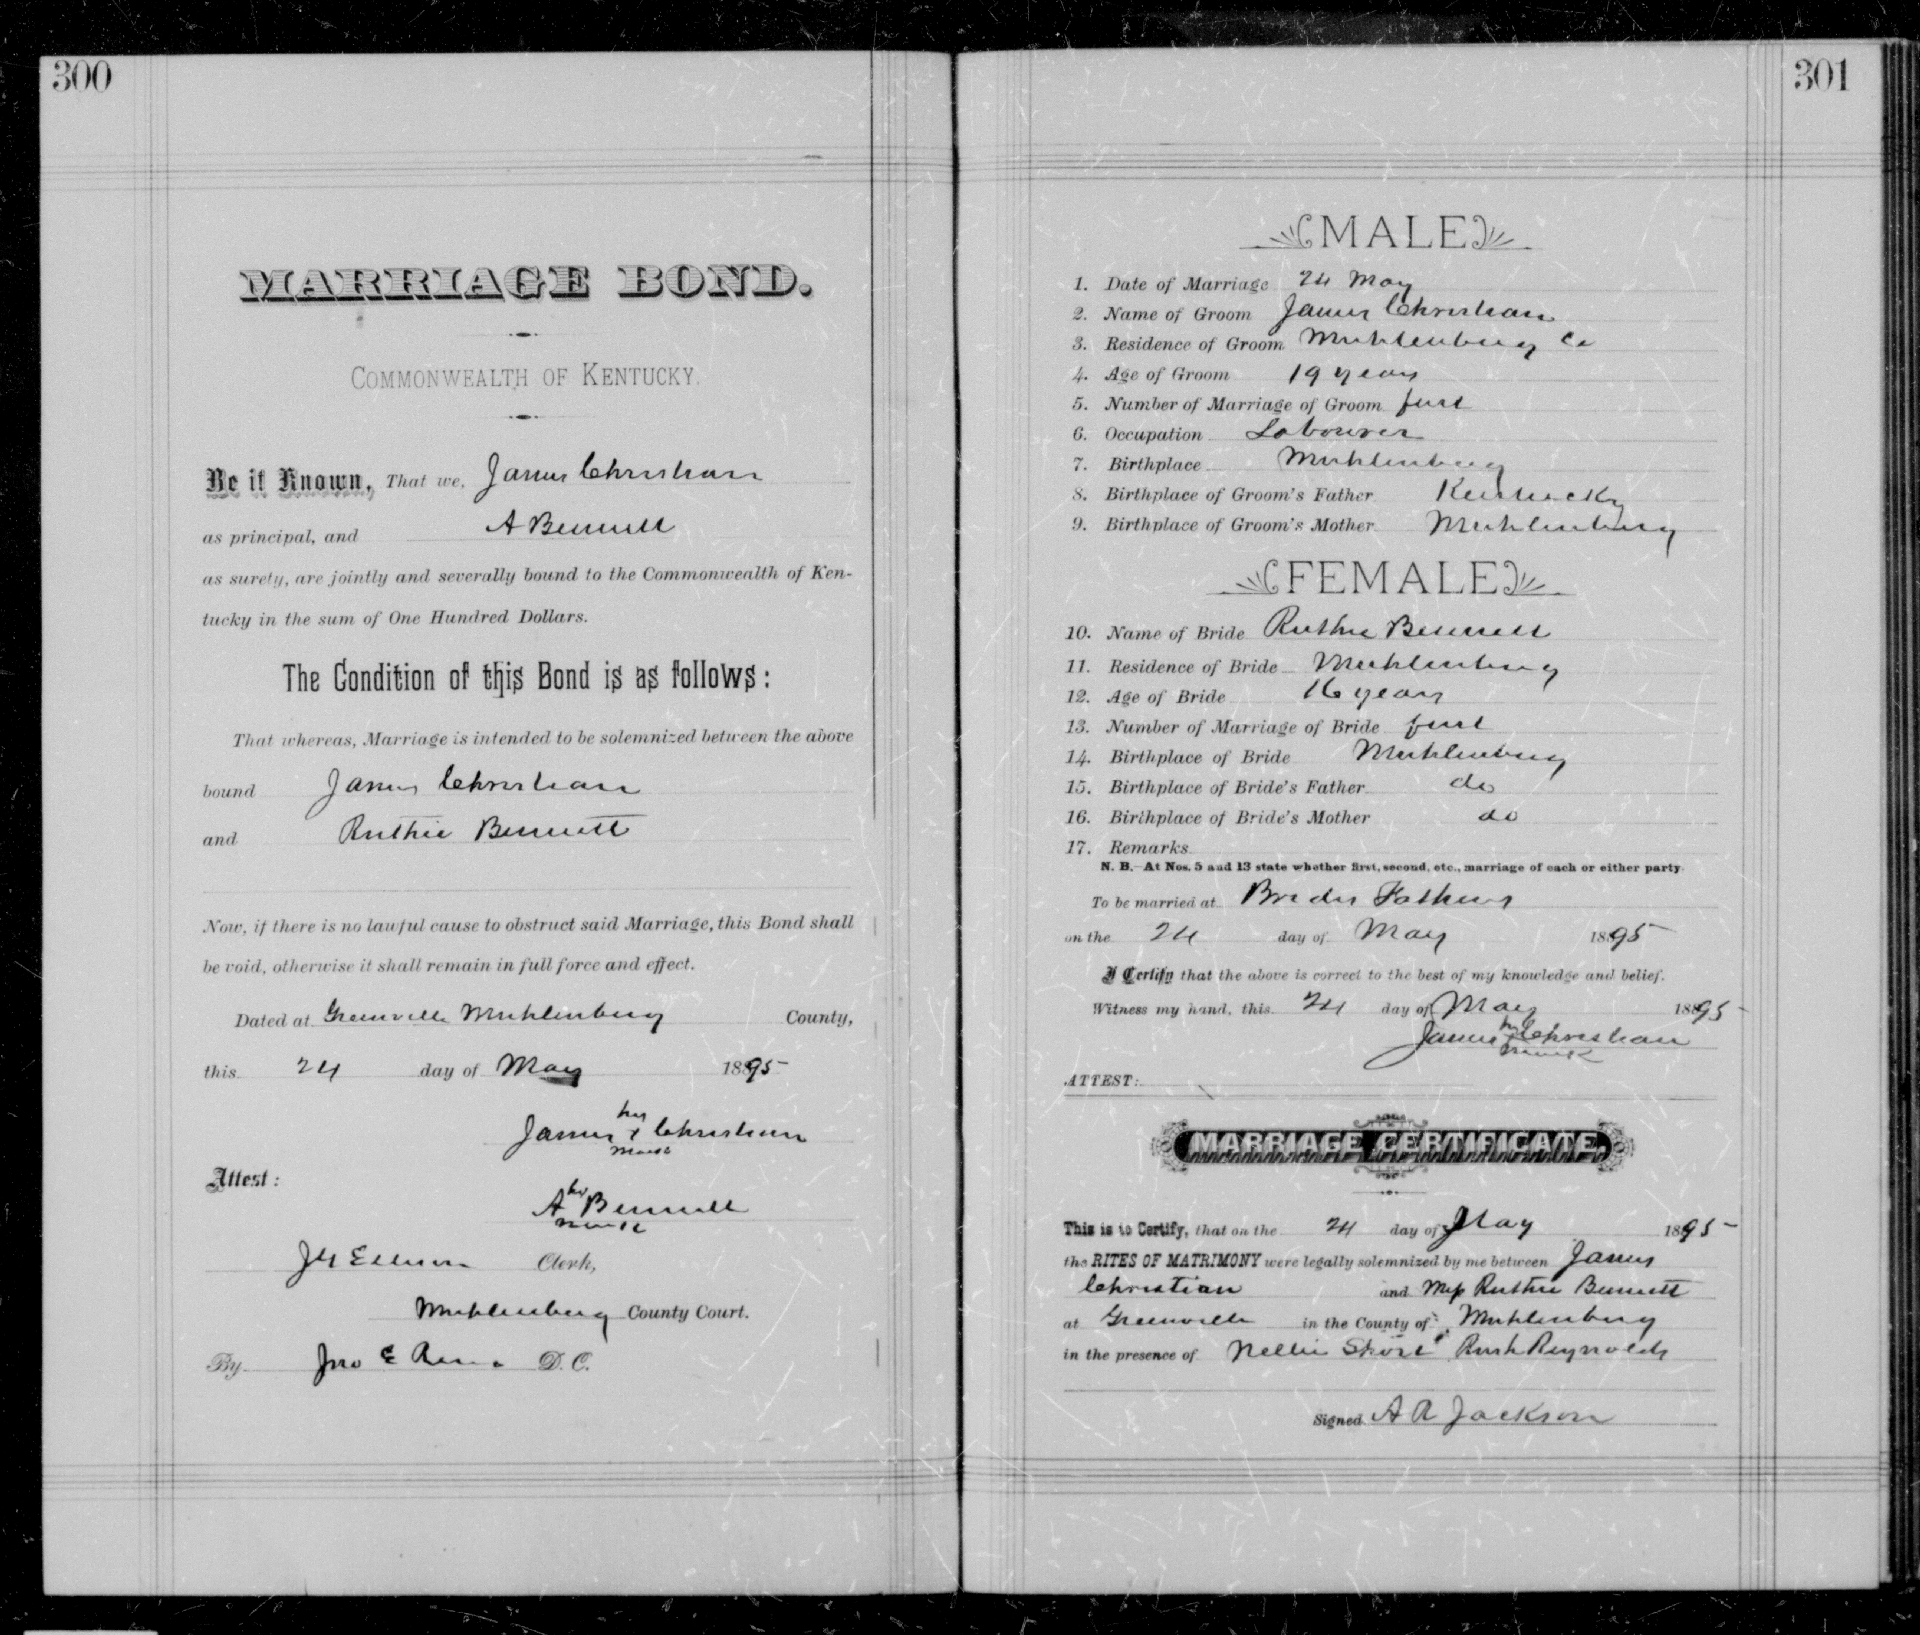 300
MARRIAGE BOND.
COMMONWEALTH OF KENTUCKY.
Be it Known, That we, James Christian
as principal, and A Bennett
as surety, are jointly and severally bound to the Commonwealth of Ken-
tucky in the sum of One Hundred Dollars.
The Condition of this Bond is as follows:
That whereas, Marriage is intended to be solemnized between the above
bound James Christian
and Ruthie Bennett
Now, if there is no lawful cause to obstruct said Marriage, this Bond shall
be void, otherwise it shall remain in full force and effect.
Dated at Greenville Muhlenburg County,
this 24 day of May 1895
his
James x Christian
mark
Attest:
his
A Bennett
mark
Clerk,
Muhlenburg County Court.
By Jno E D. C.
301
MALE
1. Date of Marriage 24 May
2. Name of Groom James Christian
3. Residence of Groom Muhlenburg Co
4. Age of Groom 19 years
5. Number of Marriage of Groom first
6. Occupation Labourer
7. Birthplace Muhlenburg
8. Birthplace of Groom's Father Kentucky
9. Birthplace of Groom's Mother Muhlenburg
FEMALE
10. Name of Bride Ruthie Bennett
11. Residence of Bride Muhlenburg
12. Age of Bride 16 years
13. Number of Marriage of Bride first
14. Birthplace of Bride Muhlenburg
15. Birthplace of Bride's Father do
16. Birthplace of Bride's Mother do
17. Remarks
N. B.—At Nos. 5 and 13 state whether first, second, etc., marriage of each or either party.
To be married at Brides Fathers
on the 24 day of May 1895
I Certify that the above is correct to the best of my knowledge and belief.
Witness my hand, this 24 day of May 1895
his
James x Christian
mark
ATTEST:
MARRIAGE CERTIFICATE.
This is to Certify, that on the 24 day of May 1895
the RITES OF MATRIMONY were legally solemnized by me between James
Christian and Miss Ruthie Bennett
at Greenville in the County of Muhlenburg
in the presence of Nellie Short Rush Reynolds
Signed A R Jackson